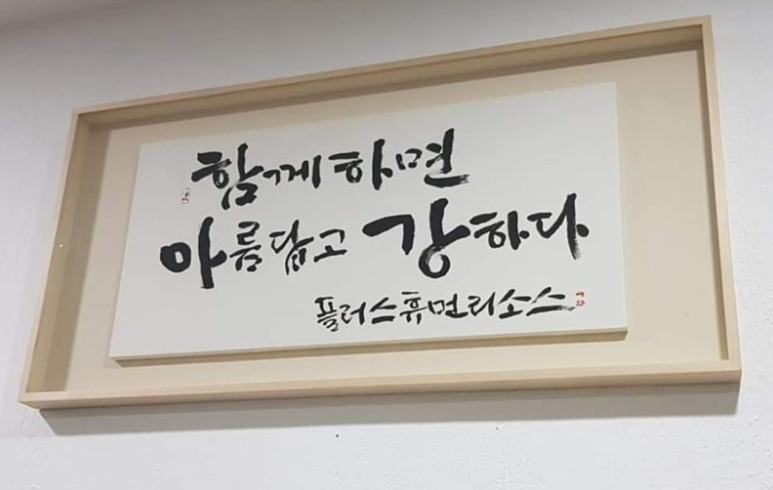 함께하면
아름답고 강하다
플러스휴먼리소스